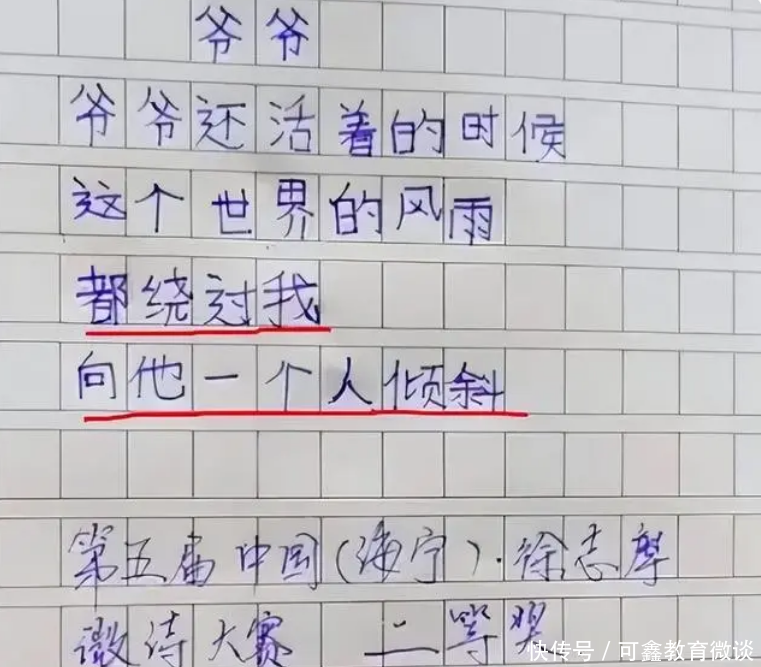 爷爷
爷爷还活着的时候
这个世界的风雨
都绕过我
向他一个人倾斜
第五届中国(海宁)·徐志摩
微诗大赛 二等奖
快传号/可鑫教育微谈